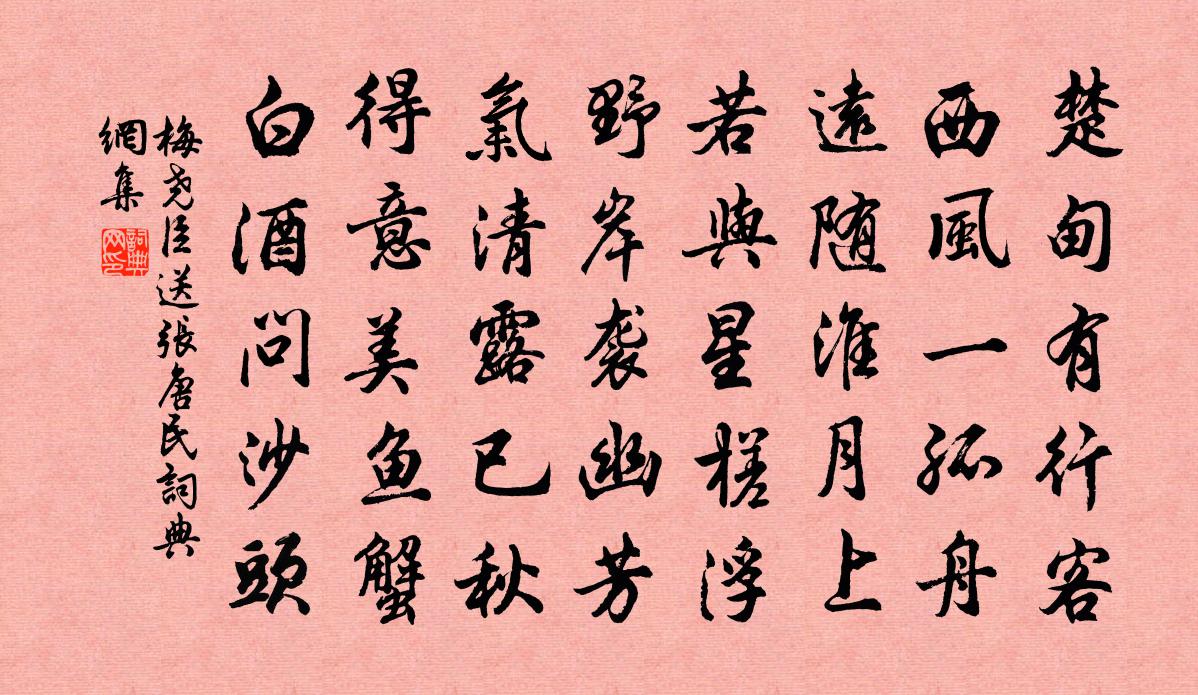 楚甸有行客
西風一孤舟
遠随淮月上
若與星槎浮
野岸袭幽芳
氣清露已秋
得意美鱼蟹
白酒問沙頭
梅尧臣送張唐民詞典
網集
詞典網印